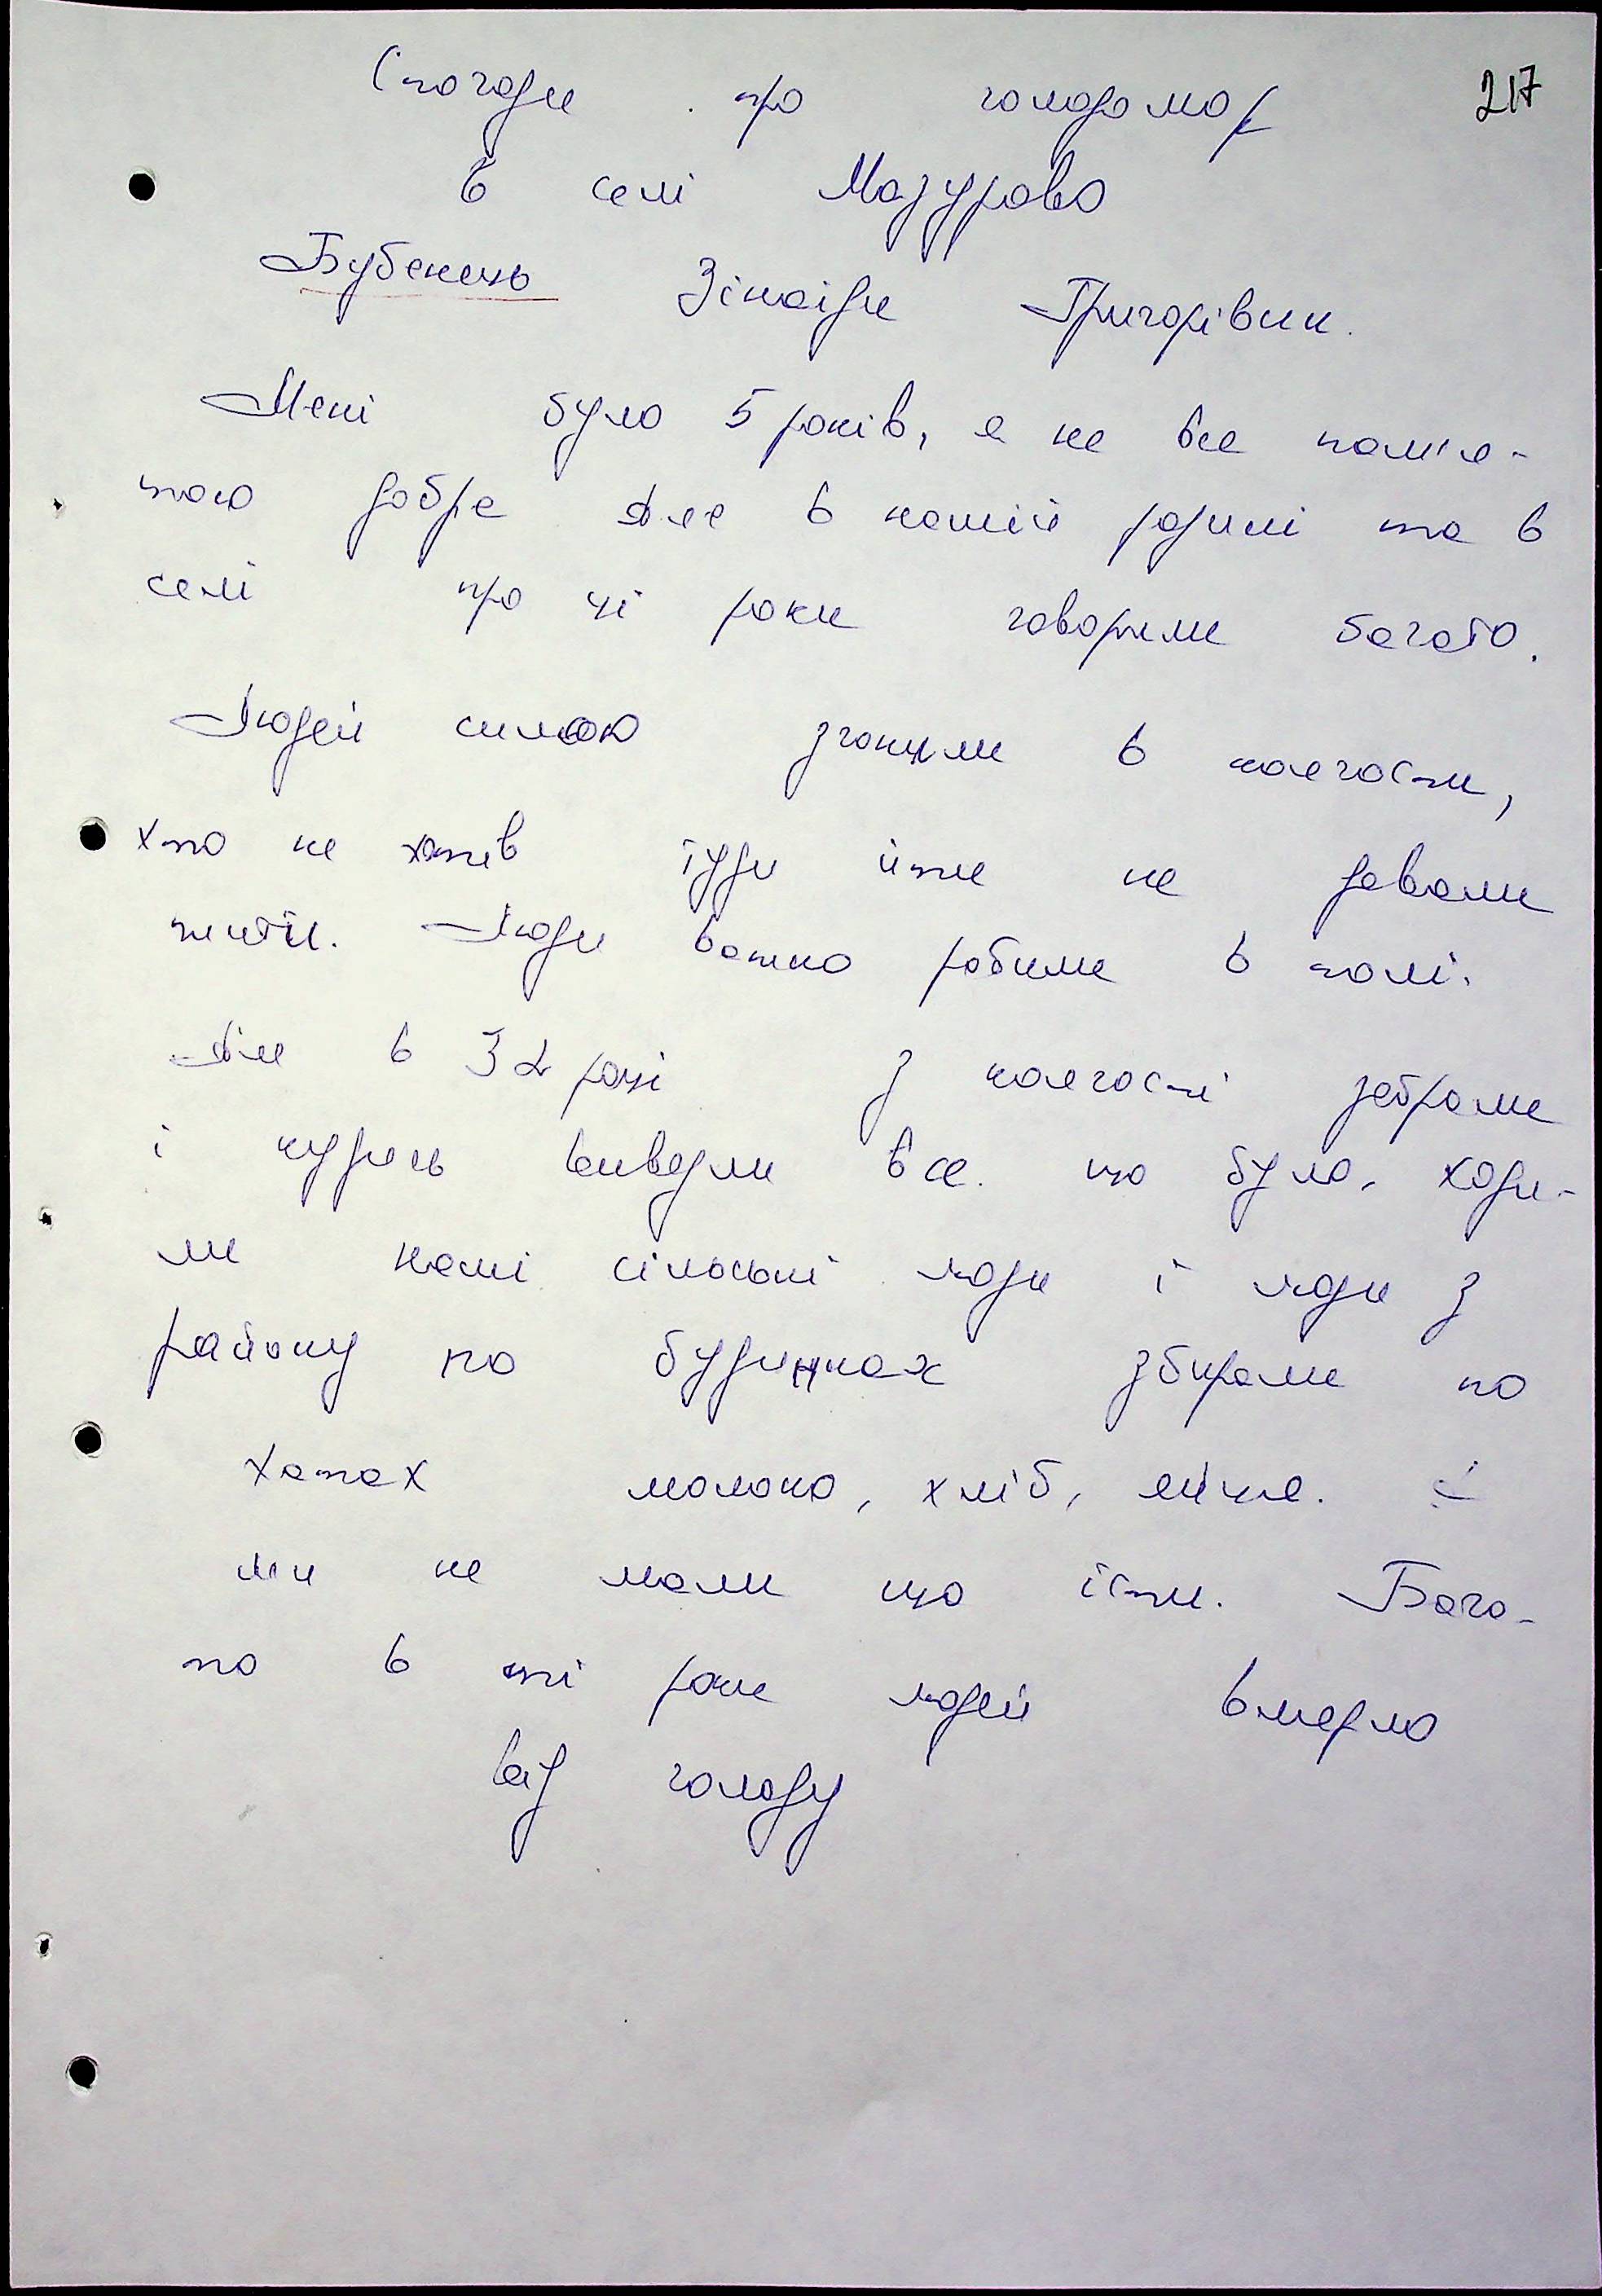 Спогади про голодомор 217
в селі Мазурово
Бубенець Зінаїди Григорівни.
Мені було 5 років, я не все пам'я-
таю добре Але в нашій родині та в
селі про ці роки говорили багато.
Людей силою згонили в колгоспи,
хто не хотів туди йти не давали
жити. Люди важко робили в полі.
Але в 32 році з колгоспі забрали
і кудись вивезли все що було, ходи-
ли наші сільські люди і люди з
району по будинках збирали по
хатах молоко, хліб, яйця. І
ми не мали що їсти. Бага-
то в ті роки людей вмерло
від голоду